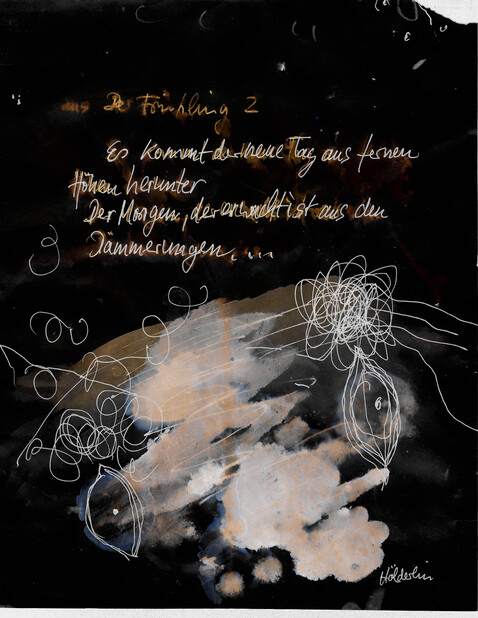 aus Der Frühling 2
Es kommt der neue Tag aus fernen
Höhen herunter
Der Morgen, der erwacht ist aus den
Dämmerungen....
Hölderlin